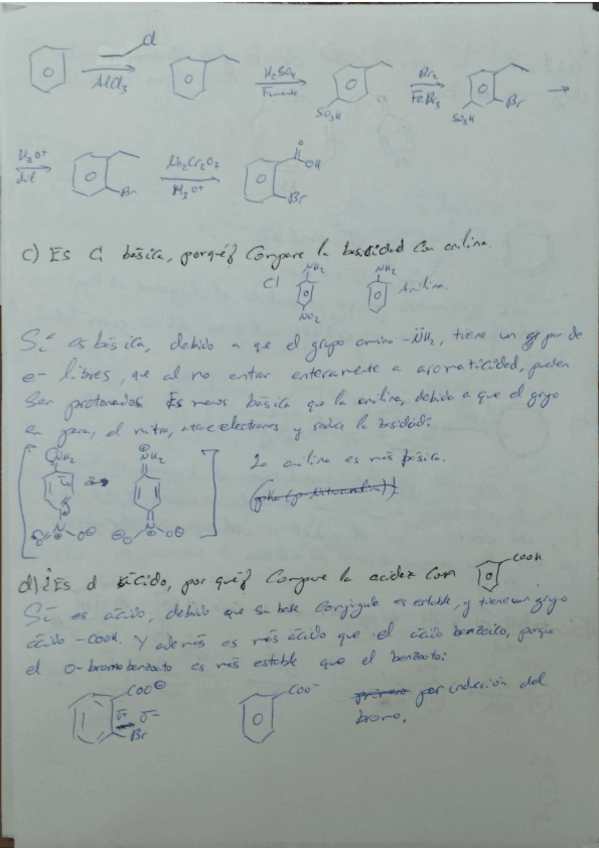 Cl
AlCl₃
H₂SO₄
Fumante
SO₃H
Br₂
FeBr₃
SO₃H
Br
H₃O⁺
dil
Br
Na₂Cr₂O₇
H₃O⁺
O
OH
Br
c) Es C básica, porqué? Compare la basicidad con anilina.
C)
NH₂
NO₂
NH₂
Anilina.
Sí es básica, debido a que el grupo amino -NH₂, tiene un par de
e- libres, que al no entrar enteramente a aromaticidad, pueden
ser protonados. Es menos básica que la anilina, debido a que el grupo
en para, el nitro, atrae electrones y reduce la basicidad:
NH₂
NH₂
La anilina es más básica.
d) ¿Es d ácido, por qué? Compare la acidez con
COOH
Sí es ácido, debido que su base conjugada es estable, y tiene un grupo
ácido -COOH. Y además es más ácido que el ácido benzoico, porque
el o-bromobenzoato es más estable que el benzoato:
COO⊖
δ+ δ-
Br
COO⁻
por inducción del
bromo.